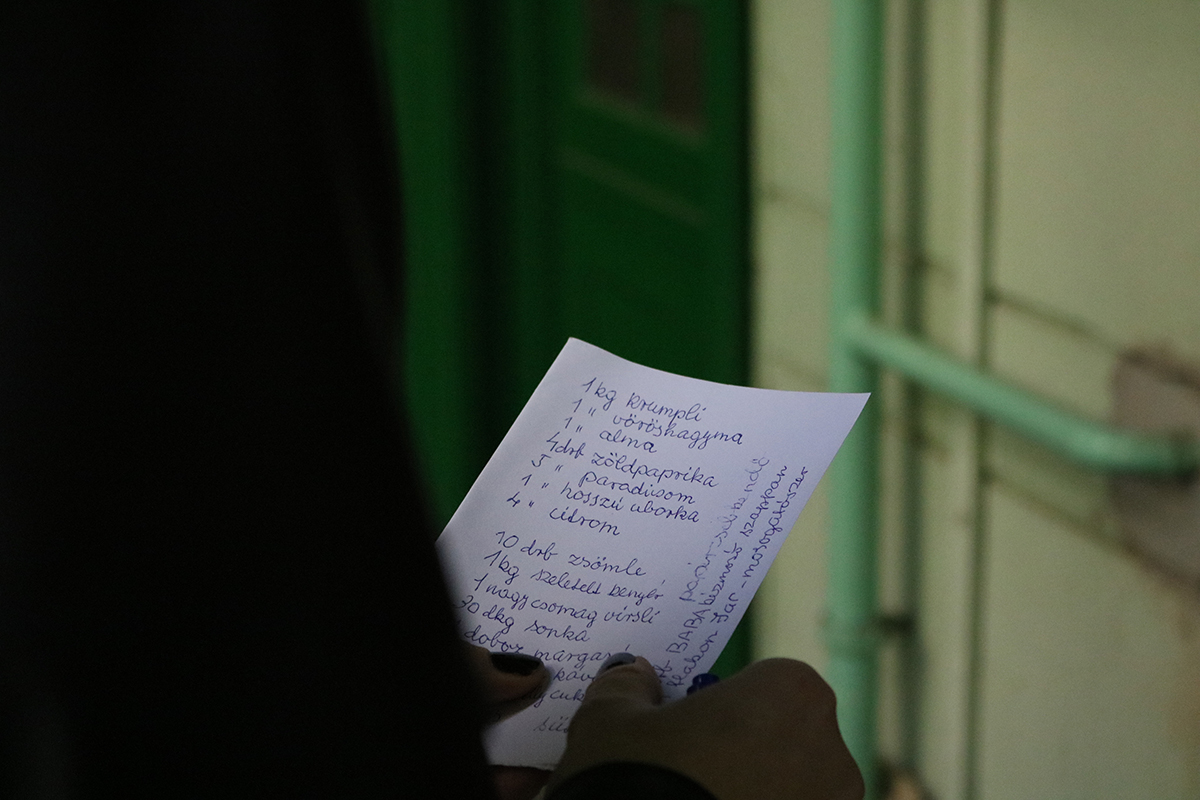 1 kg krumpli
1 " vöröshagyma
1 " alma
4 drb zöldpaprika
5 " paradicsom
1 " hosszú uborka
4 " citrom
10 drb zsömle
1 kg szeletelt kenyér
1 nagy csomag virsli
20 dkg sonka
doboz margar
káv
cuk
papírzsebkendő
BABA kézmosó szappan
flakon Jar - mosogatószer